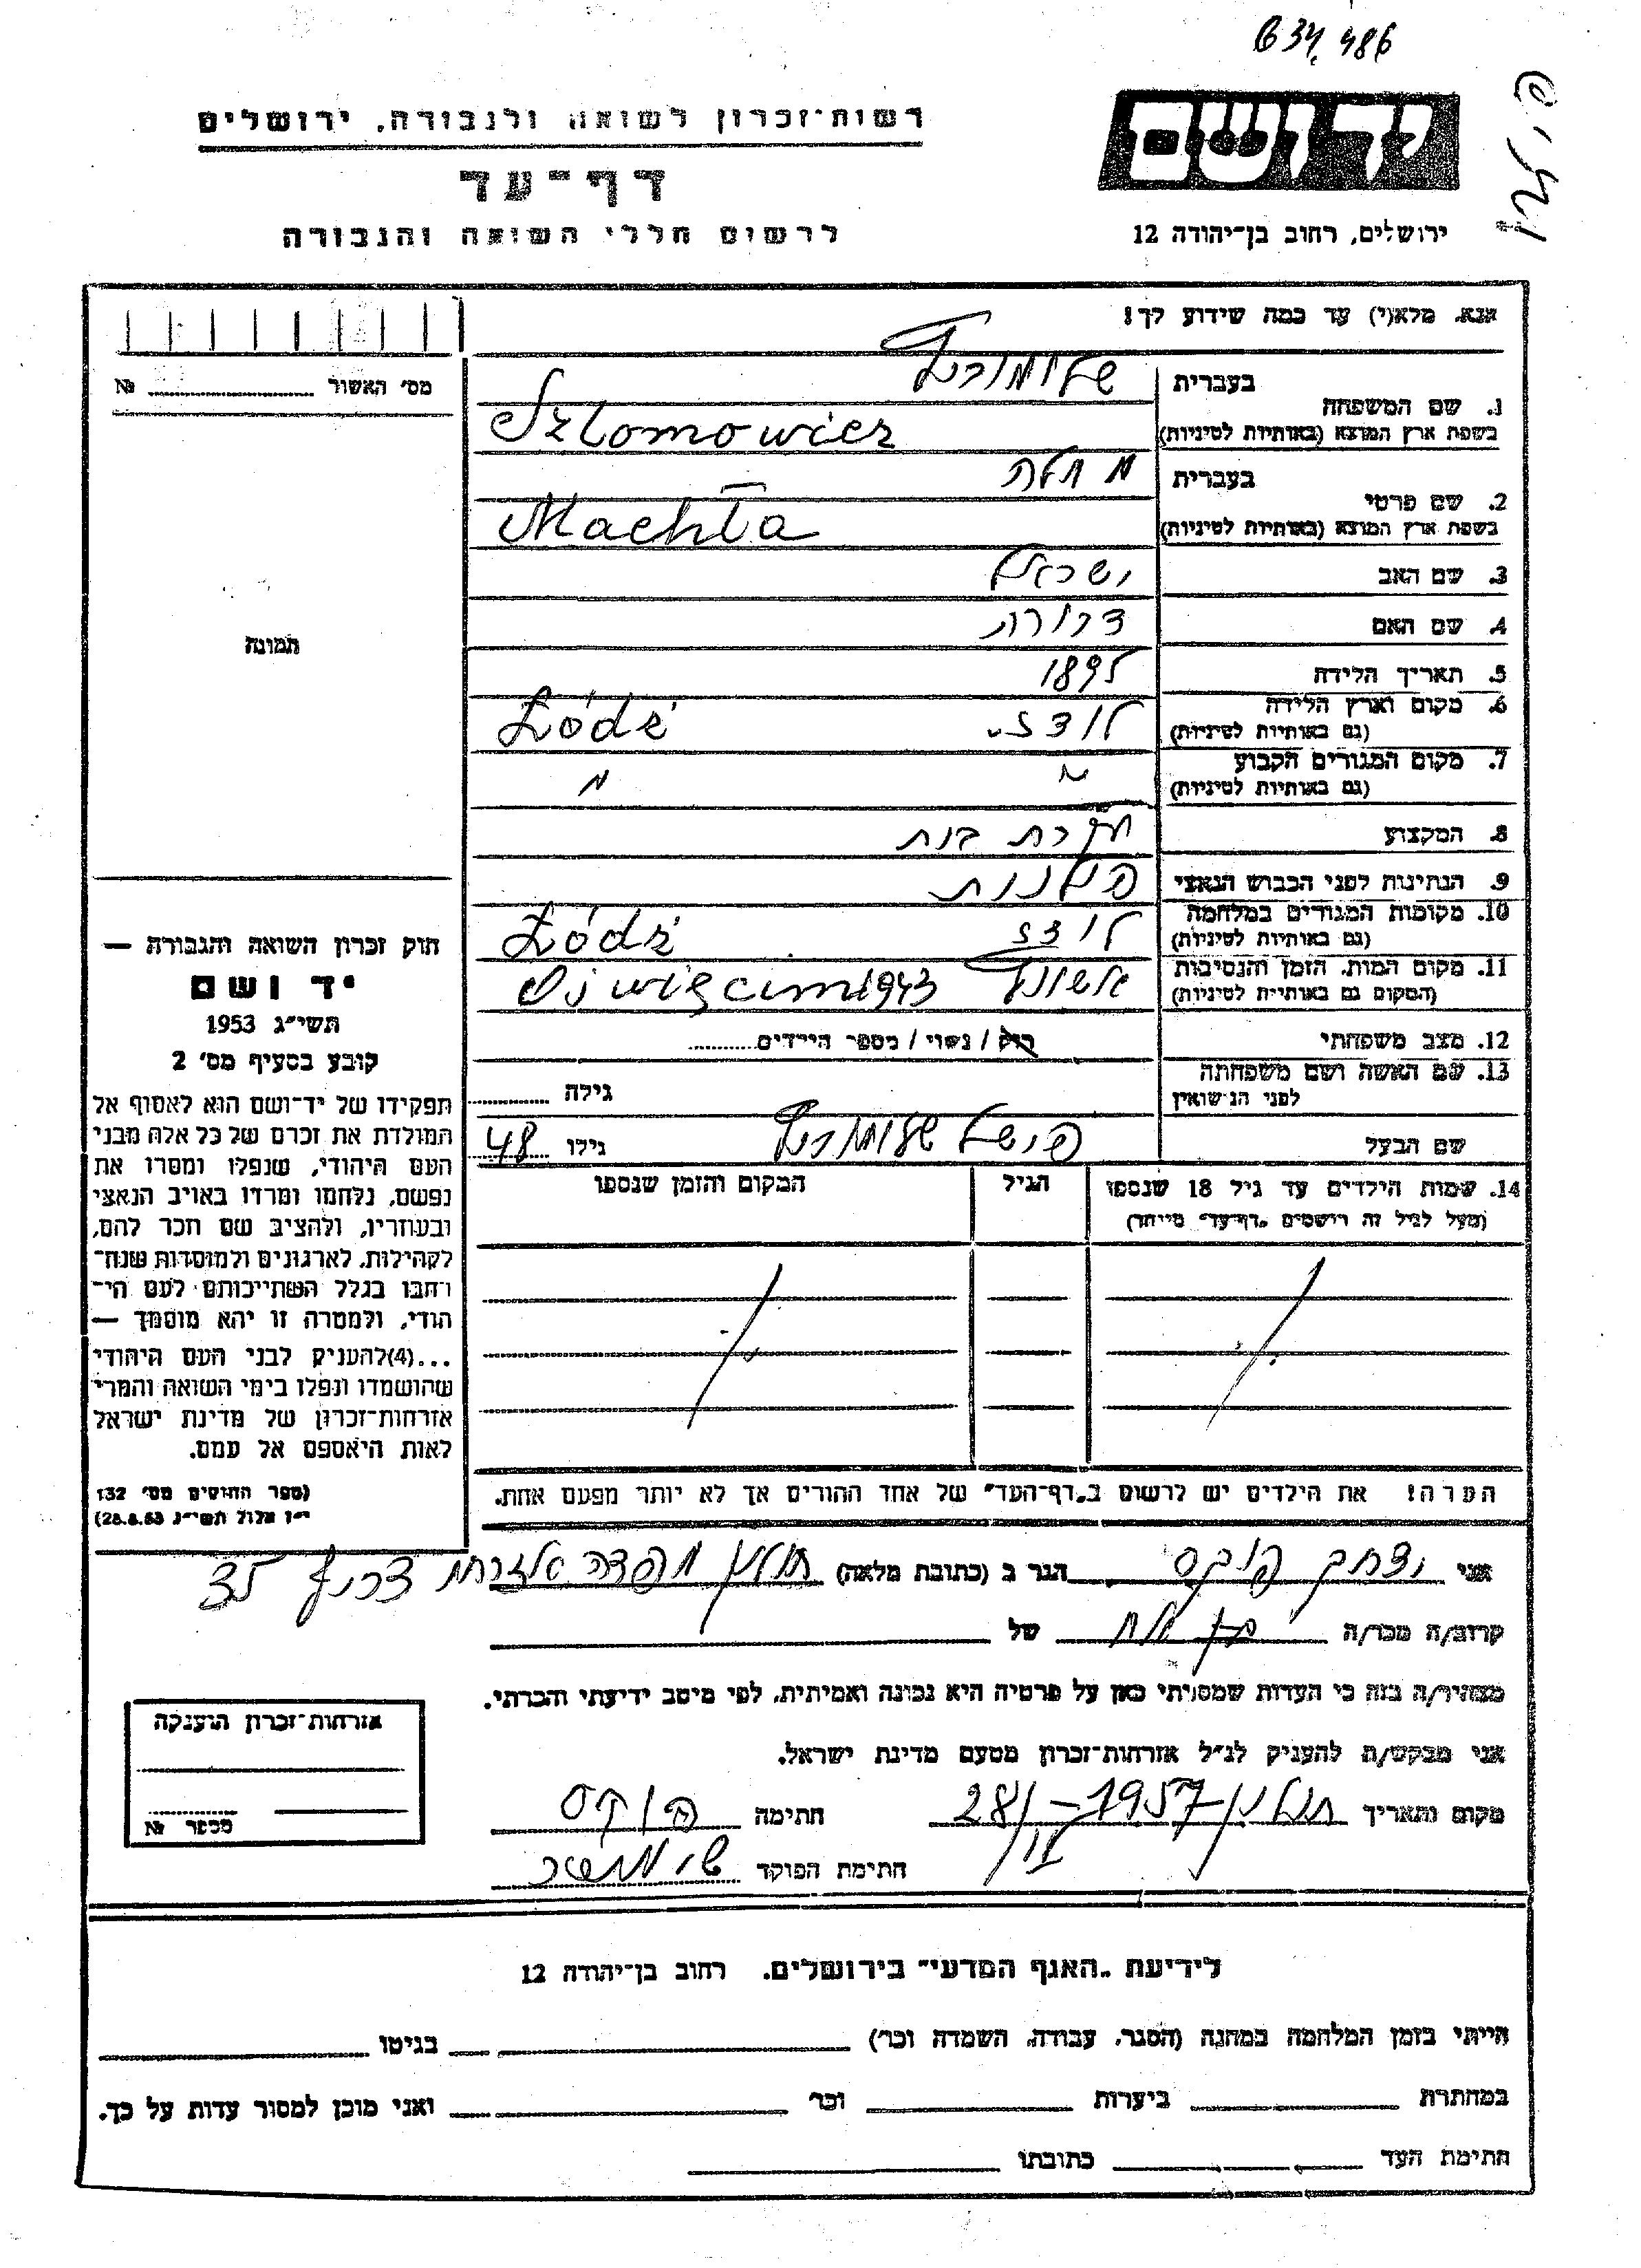 634,486
יד ושם
רשות־זכרון לשואה ולגבורה, ירושלים
דף־עד
לרשום חללי השואה והגבורה
ירושלים, רחוב בן־יהודה 12
אנא, מלא(י) עד כמה שידוע לך!
מס׳ האשור № 
1. שם המשפחה
בעברית
שלומוביץ
בשפת ארץ המוצא (באותיות לטיניות)
Szlomowicz
2. שם פרטי
בעברית
מחלה
בשפת ארץ המוצא (באותיות לטיניות)
Machla
3. שם האב ישראל
4. שם האם
5. תאריך הלידה 1895
6. מקום וארץ הלידה
(גם באותיות לטיניות)
לודז. Łódź
7. מקום המגורים הקבוע
(גם באותיות לטיניות)
" "
8. המקצוע עקרת בית
9. הנתינות לפני הכבוש הנאצי פולנית
10. מקומות המגורים במלחמה
(גם באותיות לטיניות)
לודז Łódź
11. מקום המות, הזמן והנסיבות
(המקום גם באותיות לטיניות)
אושוויץ Oświęcim 1943
12. מצב משפחתי רוק / נשוי / מספר הילדים
13. שם האשה ושם משפחתה
לפני הנישואין
גילה
שם הבעל פישל שלומוביץ גילו 48
14. שמות הילדים עד גיל 18 שנספו
(מעל לגיל זה רושמים „דף־עד” מיוחד)
הגיל
המקום והזמן שנספו
הערה! את הילדים יש לרשום ב„דף־העד” של אחד ההורים אך לא יותר מפעם אחת.
תמונה
חוק זכרון השואה והגבורה —
יד ושם
תשי״ג 1953
קובע בסעיף מס׳ 2
תפקידו של יד־ושם הוא לאסוף אל
המולדת את זכרם של כל אלה מבני
העם היהודי, שנפלו ומסרו את
נפשם, נלחמו ומרדו באויב הנאצי
ובעוזריו, ולהציב שם וזכר להם,
לקהילות, לארגונים ולמוסדות שנח־
רבו בגלל השתייכותם לעם הי־
הודי, ולמטרה זו יהא מוסמך —
...(4)להעניק לבני העם היהודי
שהושמדו ונפלו בימי השואה והמרי
אזרחות־זכרון של מדינת ישראל
לאות היאספם אל עמם.
(ספר החוקים מס׳ 132
י״ז אלול תשי״ג 28.8.53)
אני יצחק פוקס הגר ב (כתובת מלאה) חולון צריף 35
קרוב/ה מכר/ה בן אח של
מצהיר/ה בזה כי העדות שמסרתי כאן על פרטיה היא נכונה ואמיתית, לפי מיטב ידיעתי והכרתי.
אני מבקש/ת להעניק לנ״ל אזרחות־זכרון מטעם מדינת ישראל.
מקום ותאריך חולון 28/IV-1957 חתימה פוקס
חתימת הפוקד
אזרחות־זכרון הוענקה
מספר №
לידיעת „האגף המדעי” בירושלים, רחוב בן־יהודה 12
הייתי בזמן המלחמה במחנה (הסגר, עבודה, השמדה וכר׳) בגיטו
במחתרת ביערות וכר׳ ואני מוכן למסור עדות על כך.
חתימת העד כתובתו